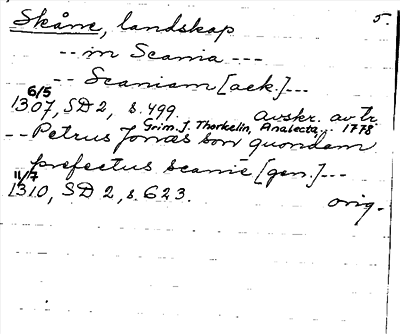 Skåne, landskap 5.
-- in Scania ---
-- Scaniam [ack.]---
6/5
1307, SD 2, s. 499. avskr. av tr.
Grim. J. Thorkelin, Analecta,.. 1778
-- Petrus Jonæs son quondam
prefectus scanie [gen.]---
11/7
1310, SD 2, s. 623. orig.